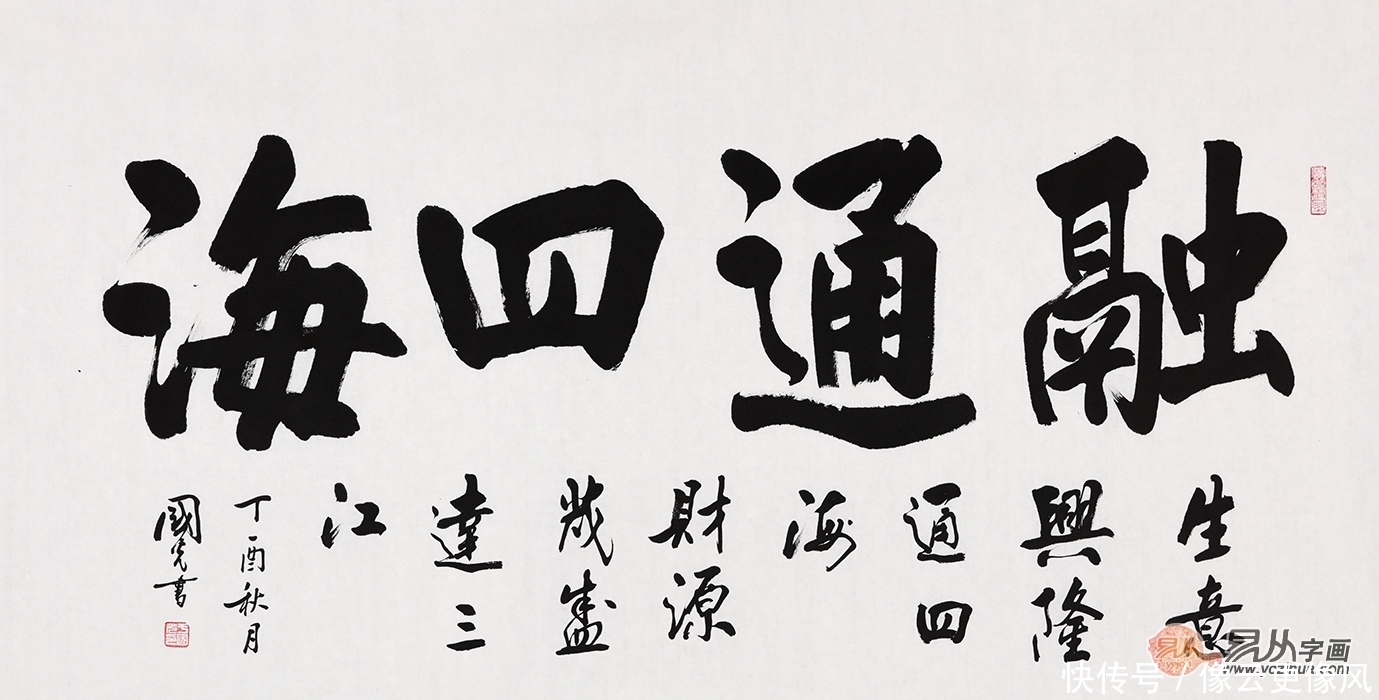 融通四海
生意
興隆
通四
海
財源
茂盛
達三
江
丁酉秋月
國光書
易从字画
www.yczihua.com
快传号/像云更像风